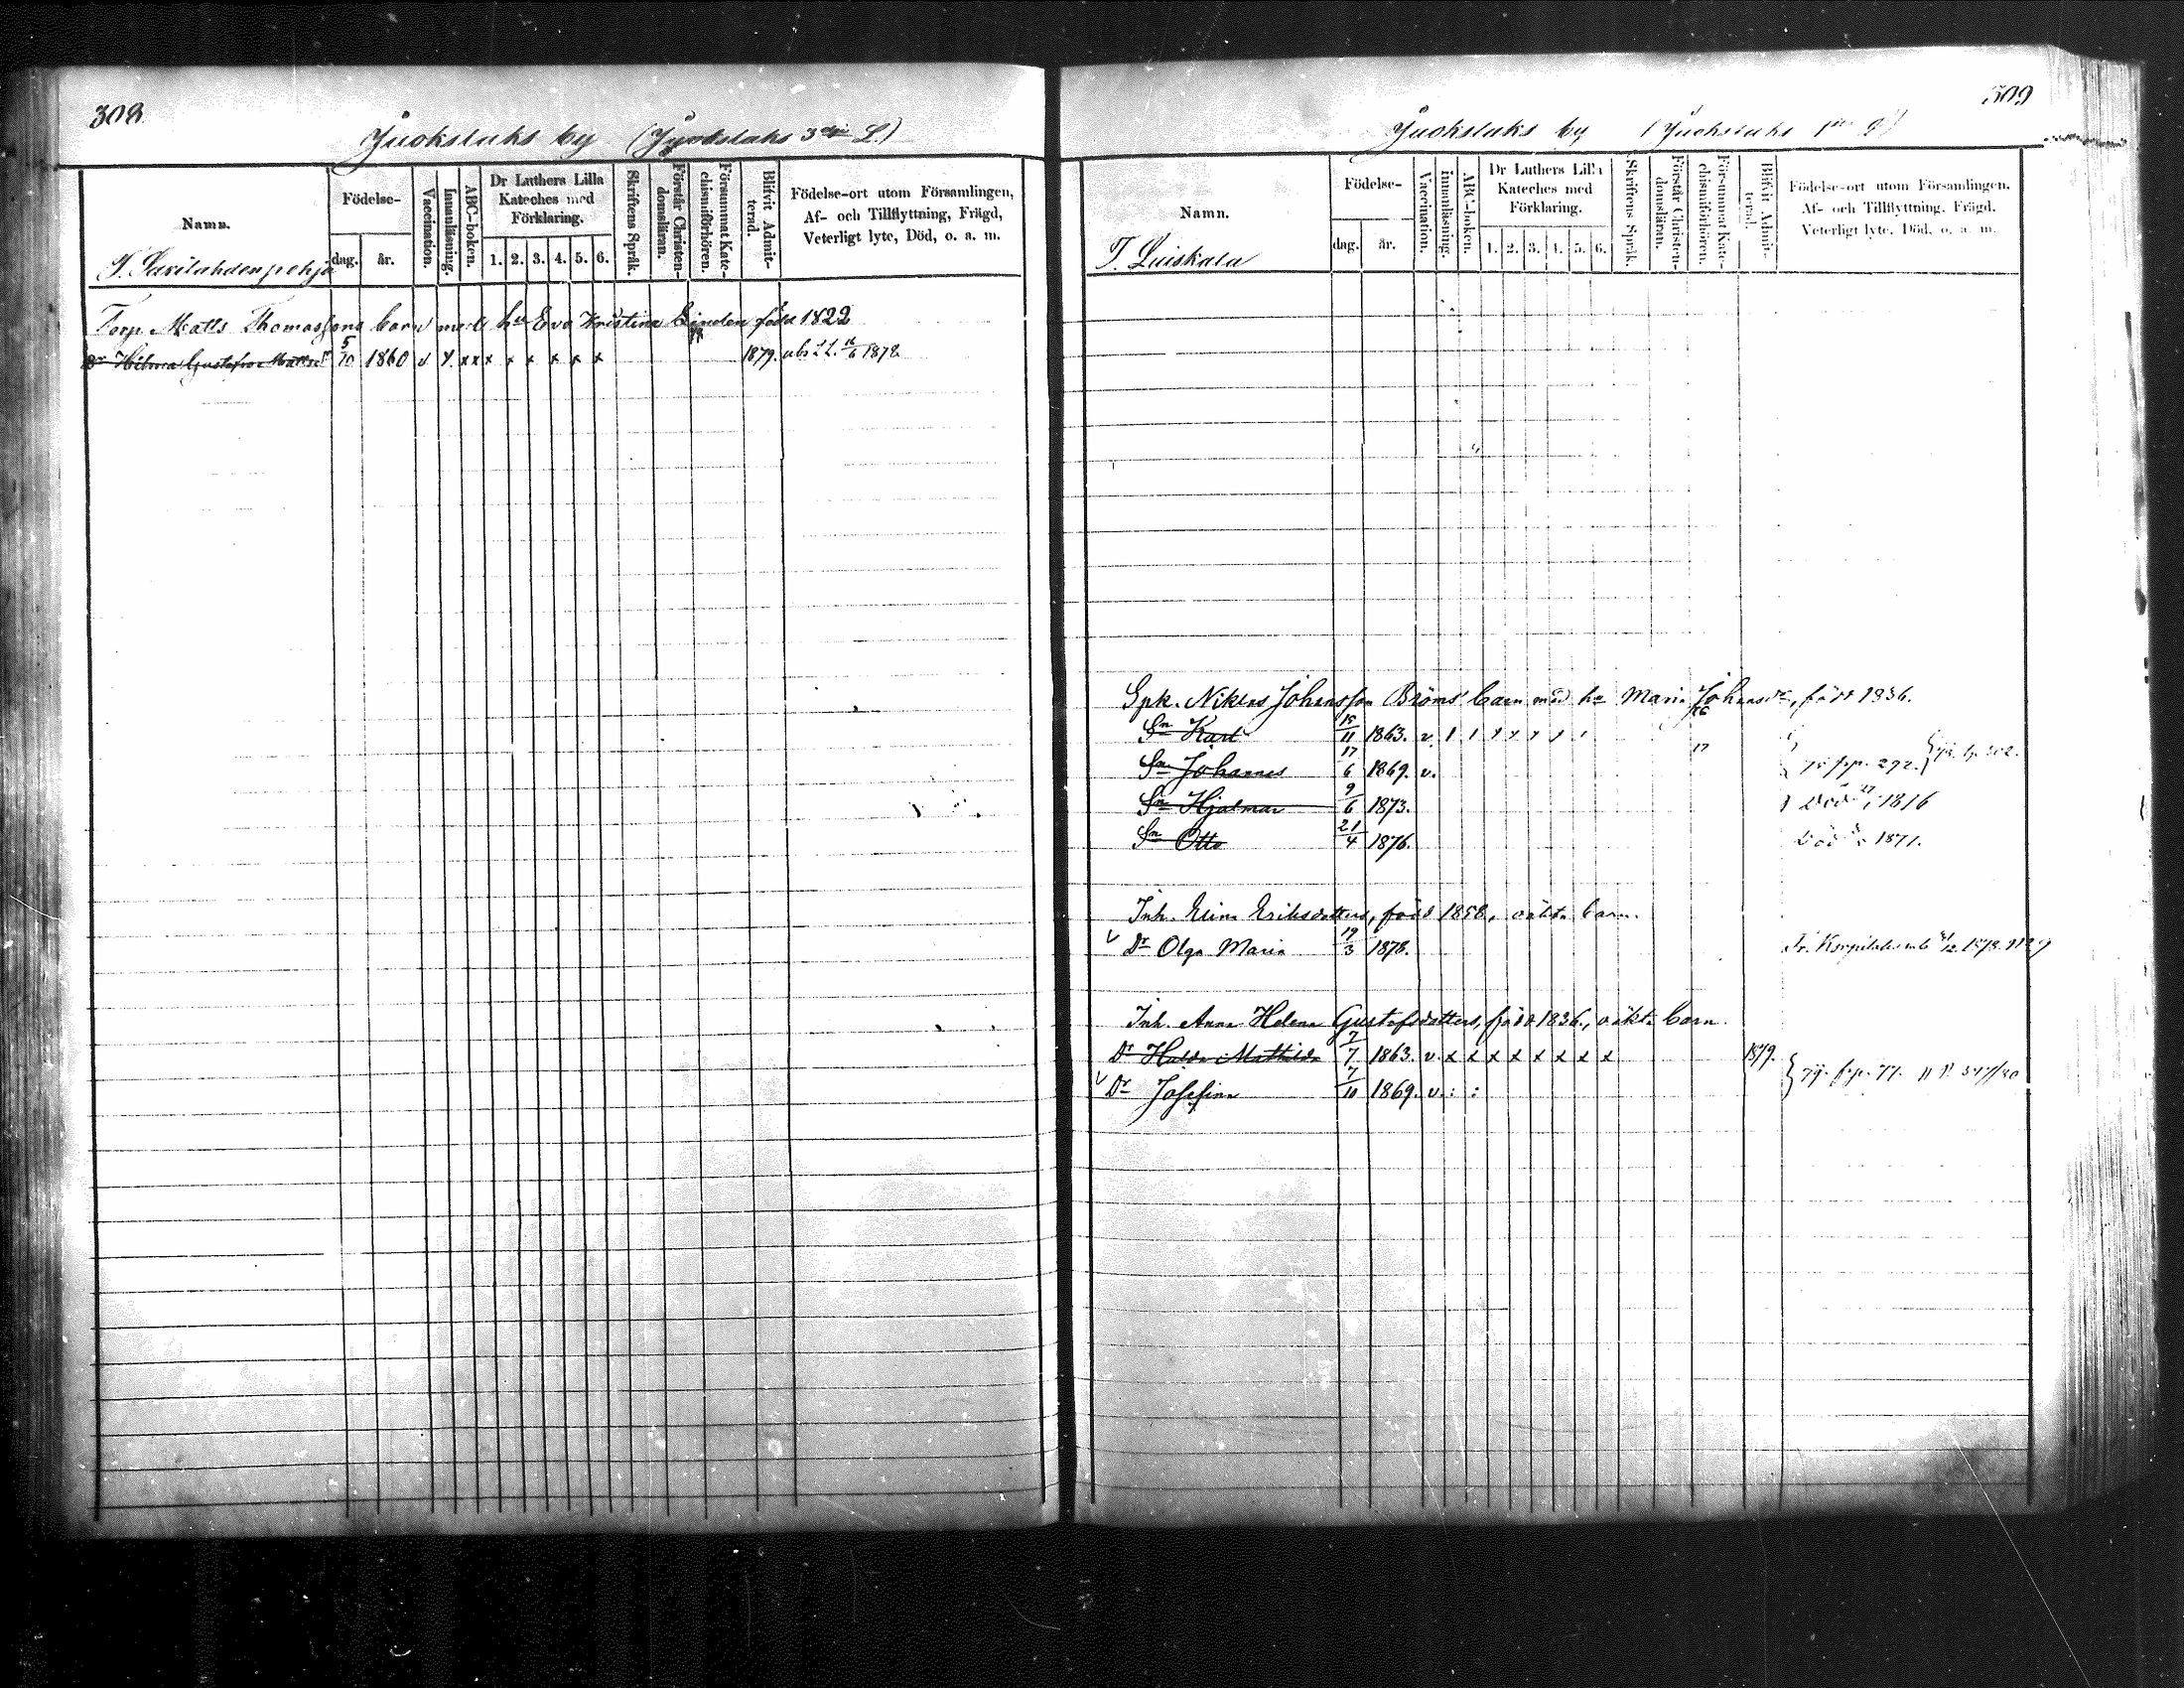 308
Juokslaks by (Juokslaks 3 L.)
Namn.
Födelse-
dag. år.
Vaccination.
Innanläsning.
ABC-boken.
Dr Luthers Lilla Kateches med Förklaring.
1. 2. 3. 4. 5. 6.
Skriftens Språk.
Förstår Christendomsläran.
Försummat Katechismiförhören.
Blifvit Admitterad.
Födelse-ort utom Församlingen, Af- och Tillflyttning, Frägd, Veterligt lyte, Död, o. a. m.
T. Savilahdenpohja
Torp. Matts Thomassons barn med hu Eva Kristina Linden född 1822
Dr Hilma Gustafva Mattsdr 5/10 1860 v x x x x x x x x x 1879. abs 1878
309
Juokslaks by (Juokslaks
Namn.
Födelse-
dag. år.
Vaccination.
Innanläsning.
ABC-boken.
Dr Luthers Lilla Kateches med Förklaring.
1. 2. 3. 4. 5. 6.
Skriftens Språk.
Förstår Christendomsläran.
Försummat Katechismiförhören.
Blifvit Admitterad.
Födelse-ort utom Församlingen. Af- och Tillflyttning. Frägd. Veterligt lyte. Död, o. a. m.
T. Luiskala
Spk. Niklas Johansson Bröms barn med hu Maria Johansdr, född 1836.
Sn Karl 15/11 1863. v.
Sn Johannes 17/6 1869. v. 292.
Sn Hjalmar 9/6 1873. Död 1876
Sn Otto 21/4 1876. Död
Inh. Elina Eriksdotters, född 1858, oäkta barn.
v Dr Olga Maria 19/3 1878. Fr.
Inh. Anna Helena Gustafsdotters, född 1836, oäkta barn.
Dr Hulda Mathilda 7/7 1863. v. x x x x x x x x 1879.
v Dr Josefina 7/10 1869. v. : :